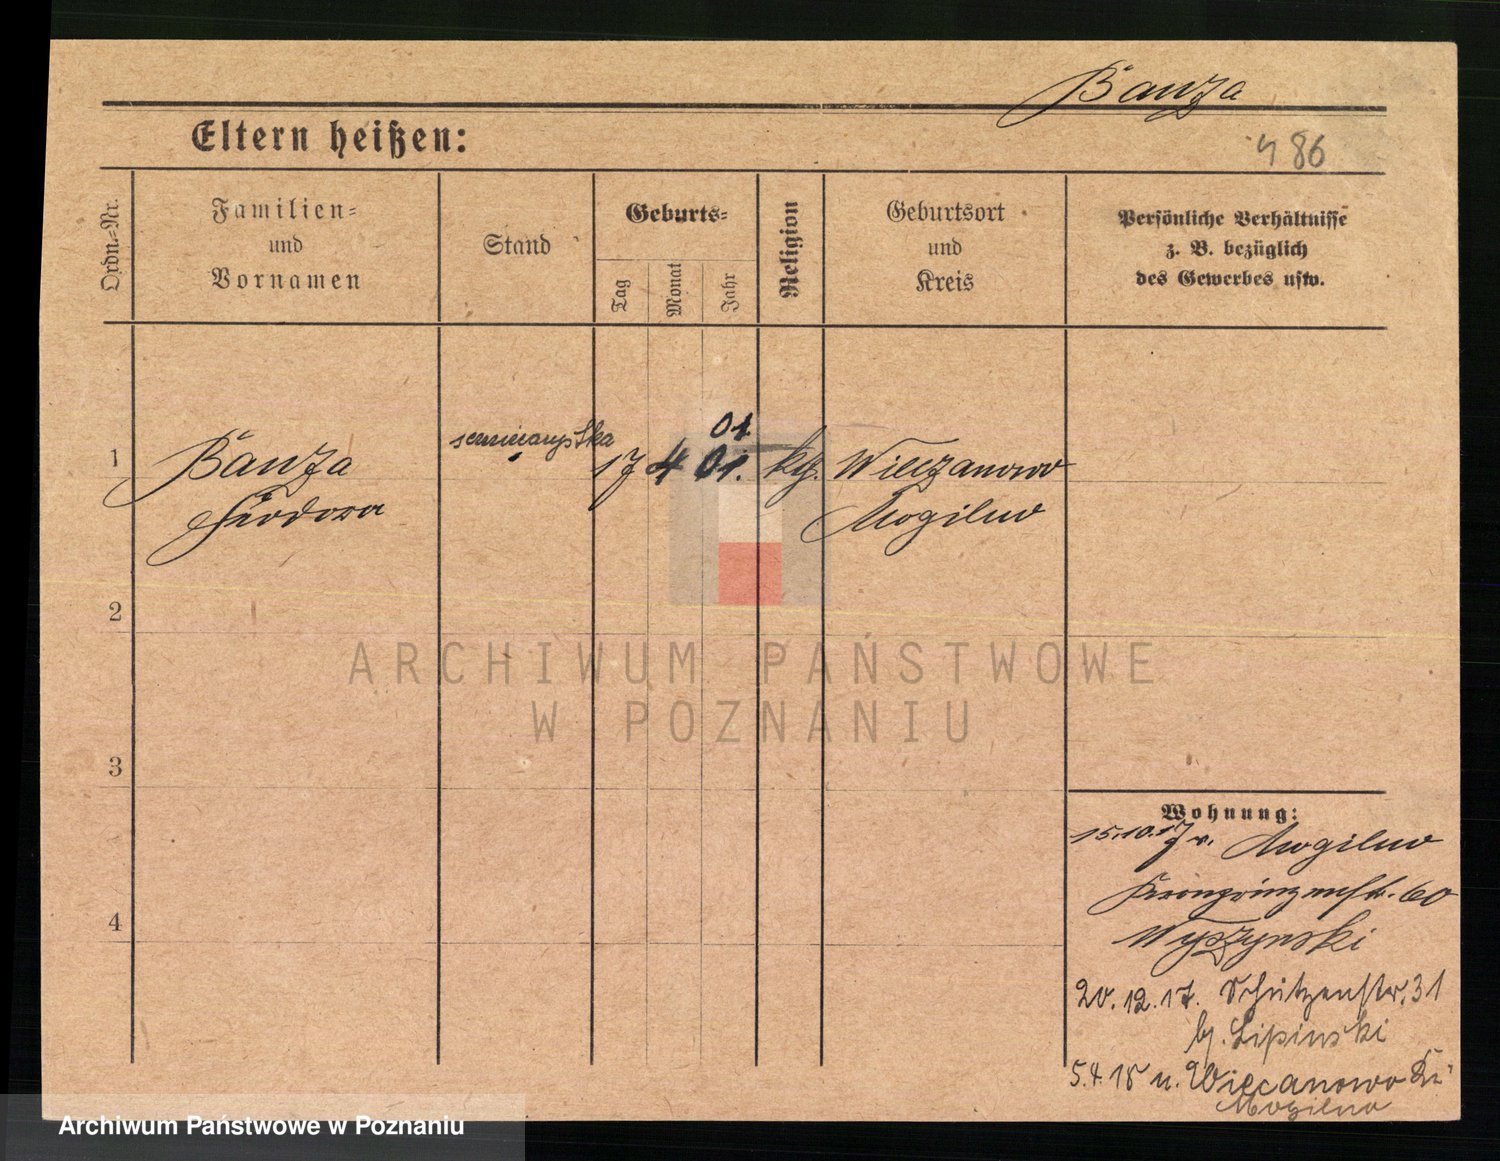 Banza
486
Eltern heißen:
Ordn.-Nr.
Familien- und Vornamen
Stand
Geburts-
Tag
Monat
Jahr
Religion
Geburtsort und Kreis
Persönliche Verhältnisse
z. B. bezüglich
des Gewerbes usw.
01.
1 Banza seminarystka 17 4 01. kg. Wieczanowo
Teodora Mogilno
2
ARCHIWUM PAŃSTWOWE
W POZNANIU
3
Wohnung:
15.10.17 v. Mogilno
Kronprinzenstr. 60
Wyszynski
4
20.12.17. Schützenstr. 31
bj. Lipinski
5.4.18 n. Wiecanowo Kr.
Mogilno
Archiwum Państwowe w Poznaniu